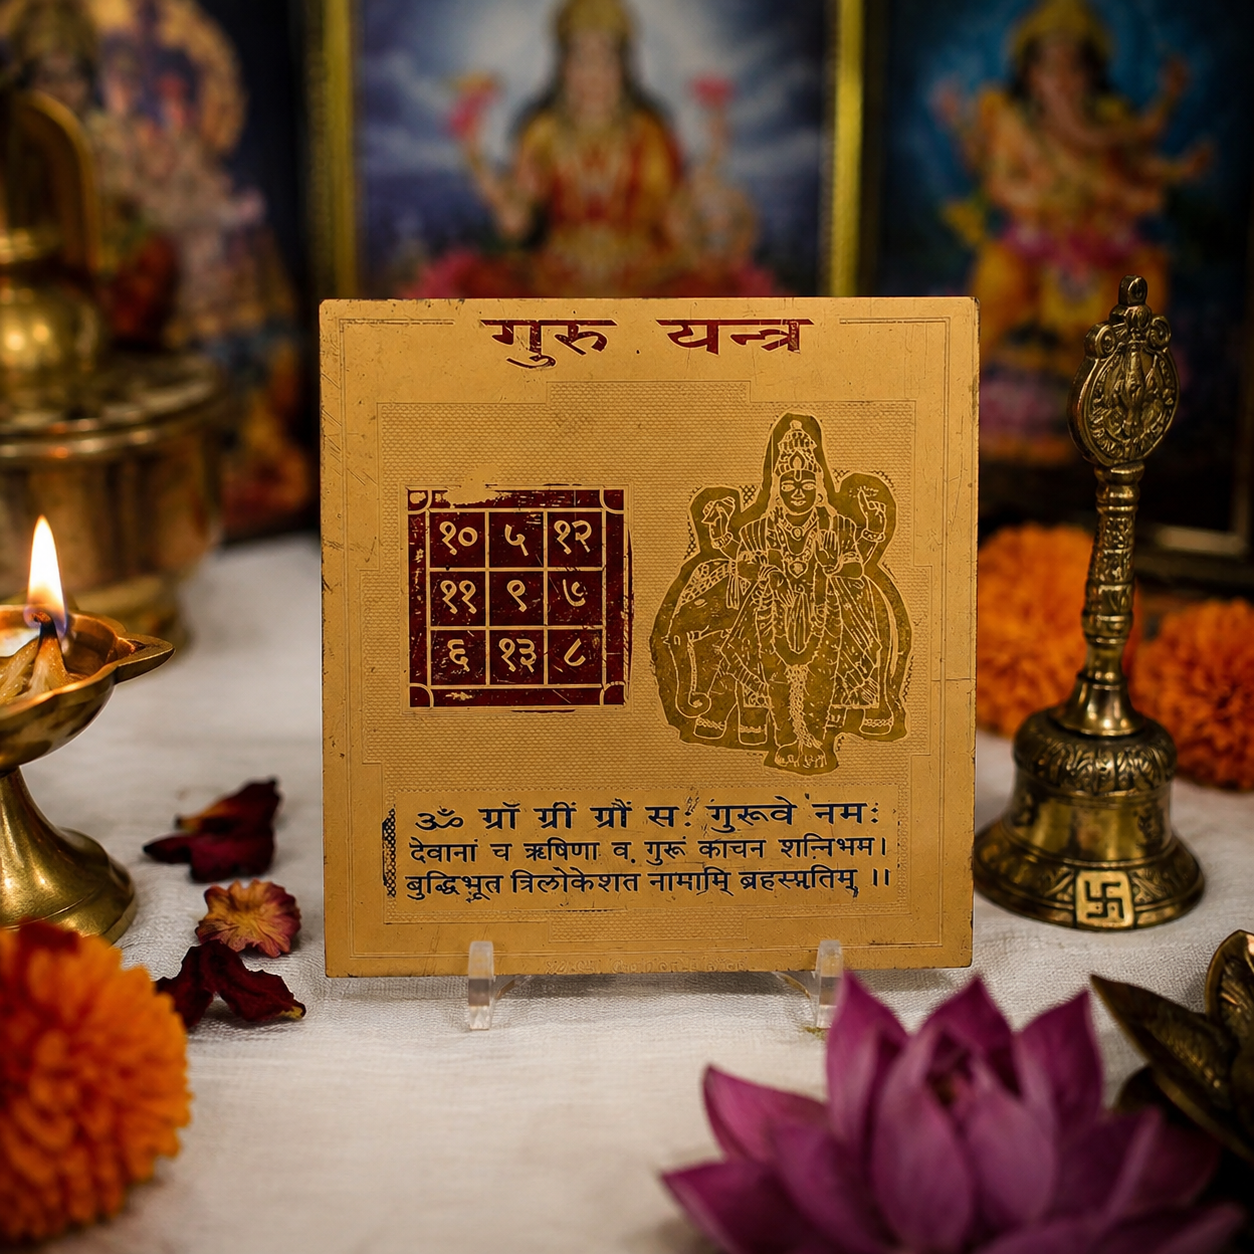 गुरु यन्त्र
१० ५ १२
११ ९ ७
६ १३ ८
ॐ ग्राँ ग्रीं ग्रौं सः गुरूवे नमः
देवानां च ऋषिणा व गुरूं कांचन शन्निभम।
बुद्धिभूत त्रिलोकेशत नामामि ब्रहस्पतिम् ।।